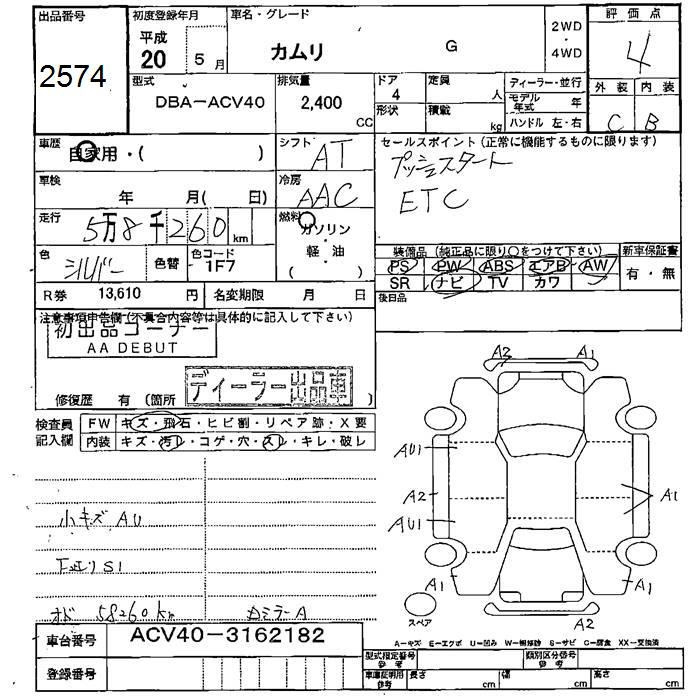 出品番号
2574
初度登録年月
平成
20 5 月
車名・グレード
カムリ G
2WD
・
4WD
評価点
4
型式
DBA-ACV40
排気量
2,400
CC
ドア
4
形状
定員
人
積載
kg
ディーラー・並行
モデル年式 年
ハンドル 左・右
外装 内装
C B
車歴
自家用・( )
シフト
AT
車検
年 月( 日)
冷房
AAC
走行
5万8千260 km
燃料
ガソリン
・
軽・油
( )
色
シルバー
色替
色コード
1F7
R券 13,610 円
名変期限 月 日
セールスポイント(正常に機能するものに限ります)
プッシュスタート
ETC
装備品(純正品に限り○をつけて下さい)
PS PW ABS エアB AW
SR ナビ TV カワ
新車保証書
有・無
後日品
注意事項申告欄(不具合内容等は具体的に記入して下さい)
初出品コーナー
AA DEBUT
修復歴 有 (箇所 )
ディーラー出品車
検査員
記入欄
FW キズ・飛石・ヒビ割・リペア跡・X要
内装 キズ・汚レ・コゲ・穴・スレ・キレ・破レ
小キズ AU
S1
58260km
ミラーA
A2 A1
AU1
A2
AU1
A1
A1
A1
A2
スペア
A-キズ E-エクボ U-凹み W-補修跡 S-サビ C-腐食 XX-交換済
車台番号 ACV40-3162182
登録番号
型式指定番号
参考
類別区分番号
参考
車庫証明用
参考
長さ cm
幅 cm
高さ cm